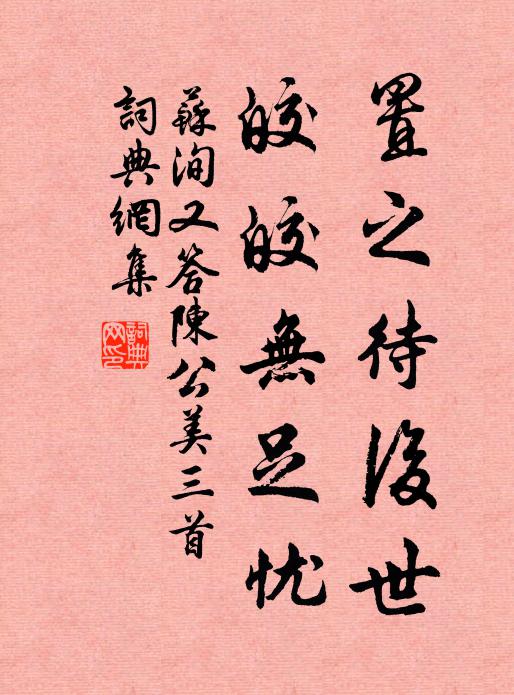 置之待後世
皎皎無足忧
蘇洵又答陳公美三首
詞典網集
詞典網印